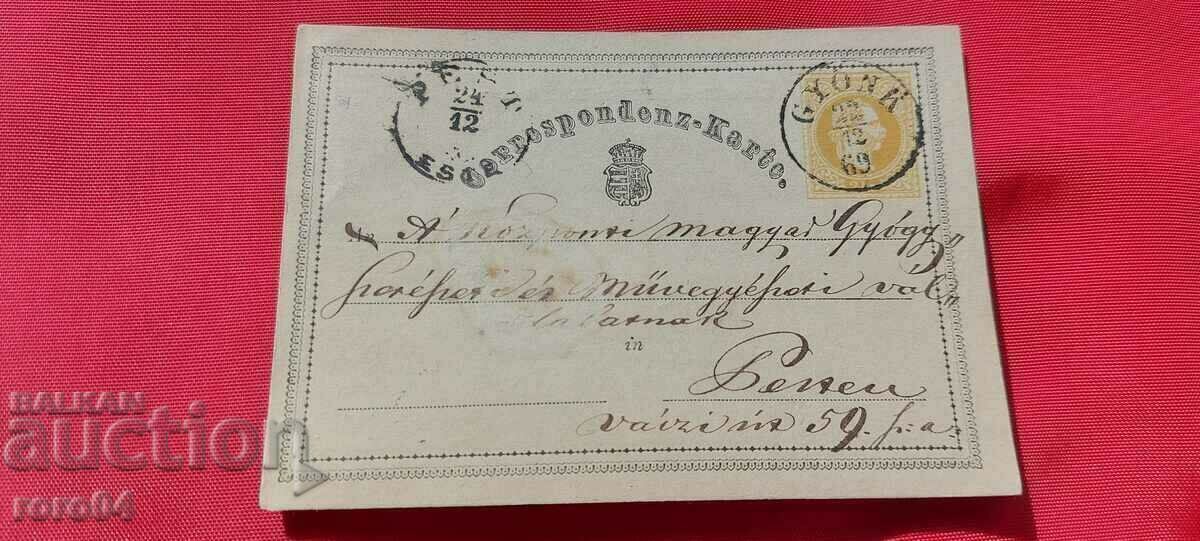 PEST
24
12
ESTE
Correspondenz-Karte.
GYÖNK
22
12
69
A Központi magyar Gyógy„
szerészeti és Művegyészeti vál„
lalatnak
in
Pesten
váczi út 59. sz. a.
BALKAN
auction
roro84